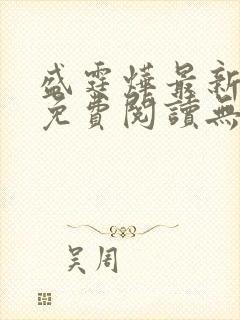 盛霆燁最新
免費閱讀無
吴周